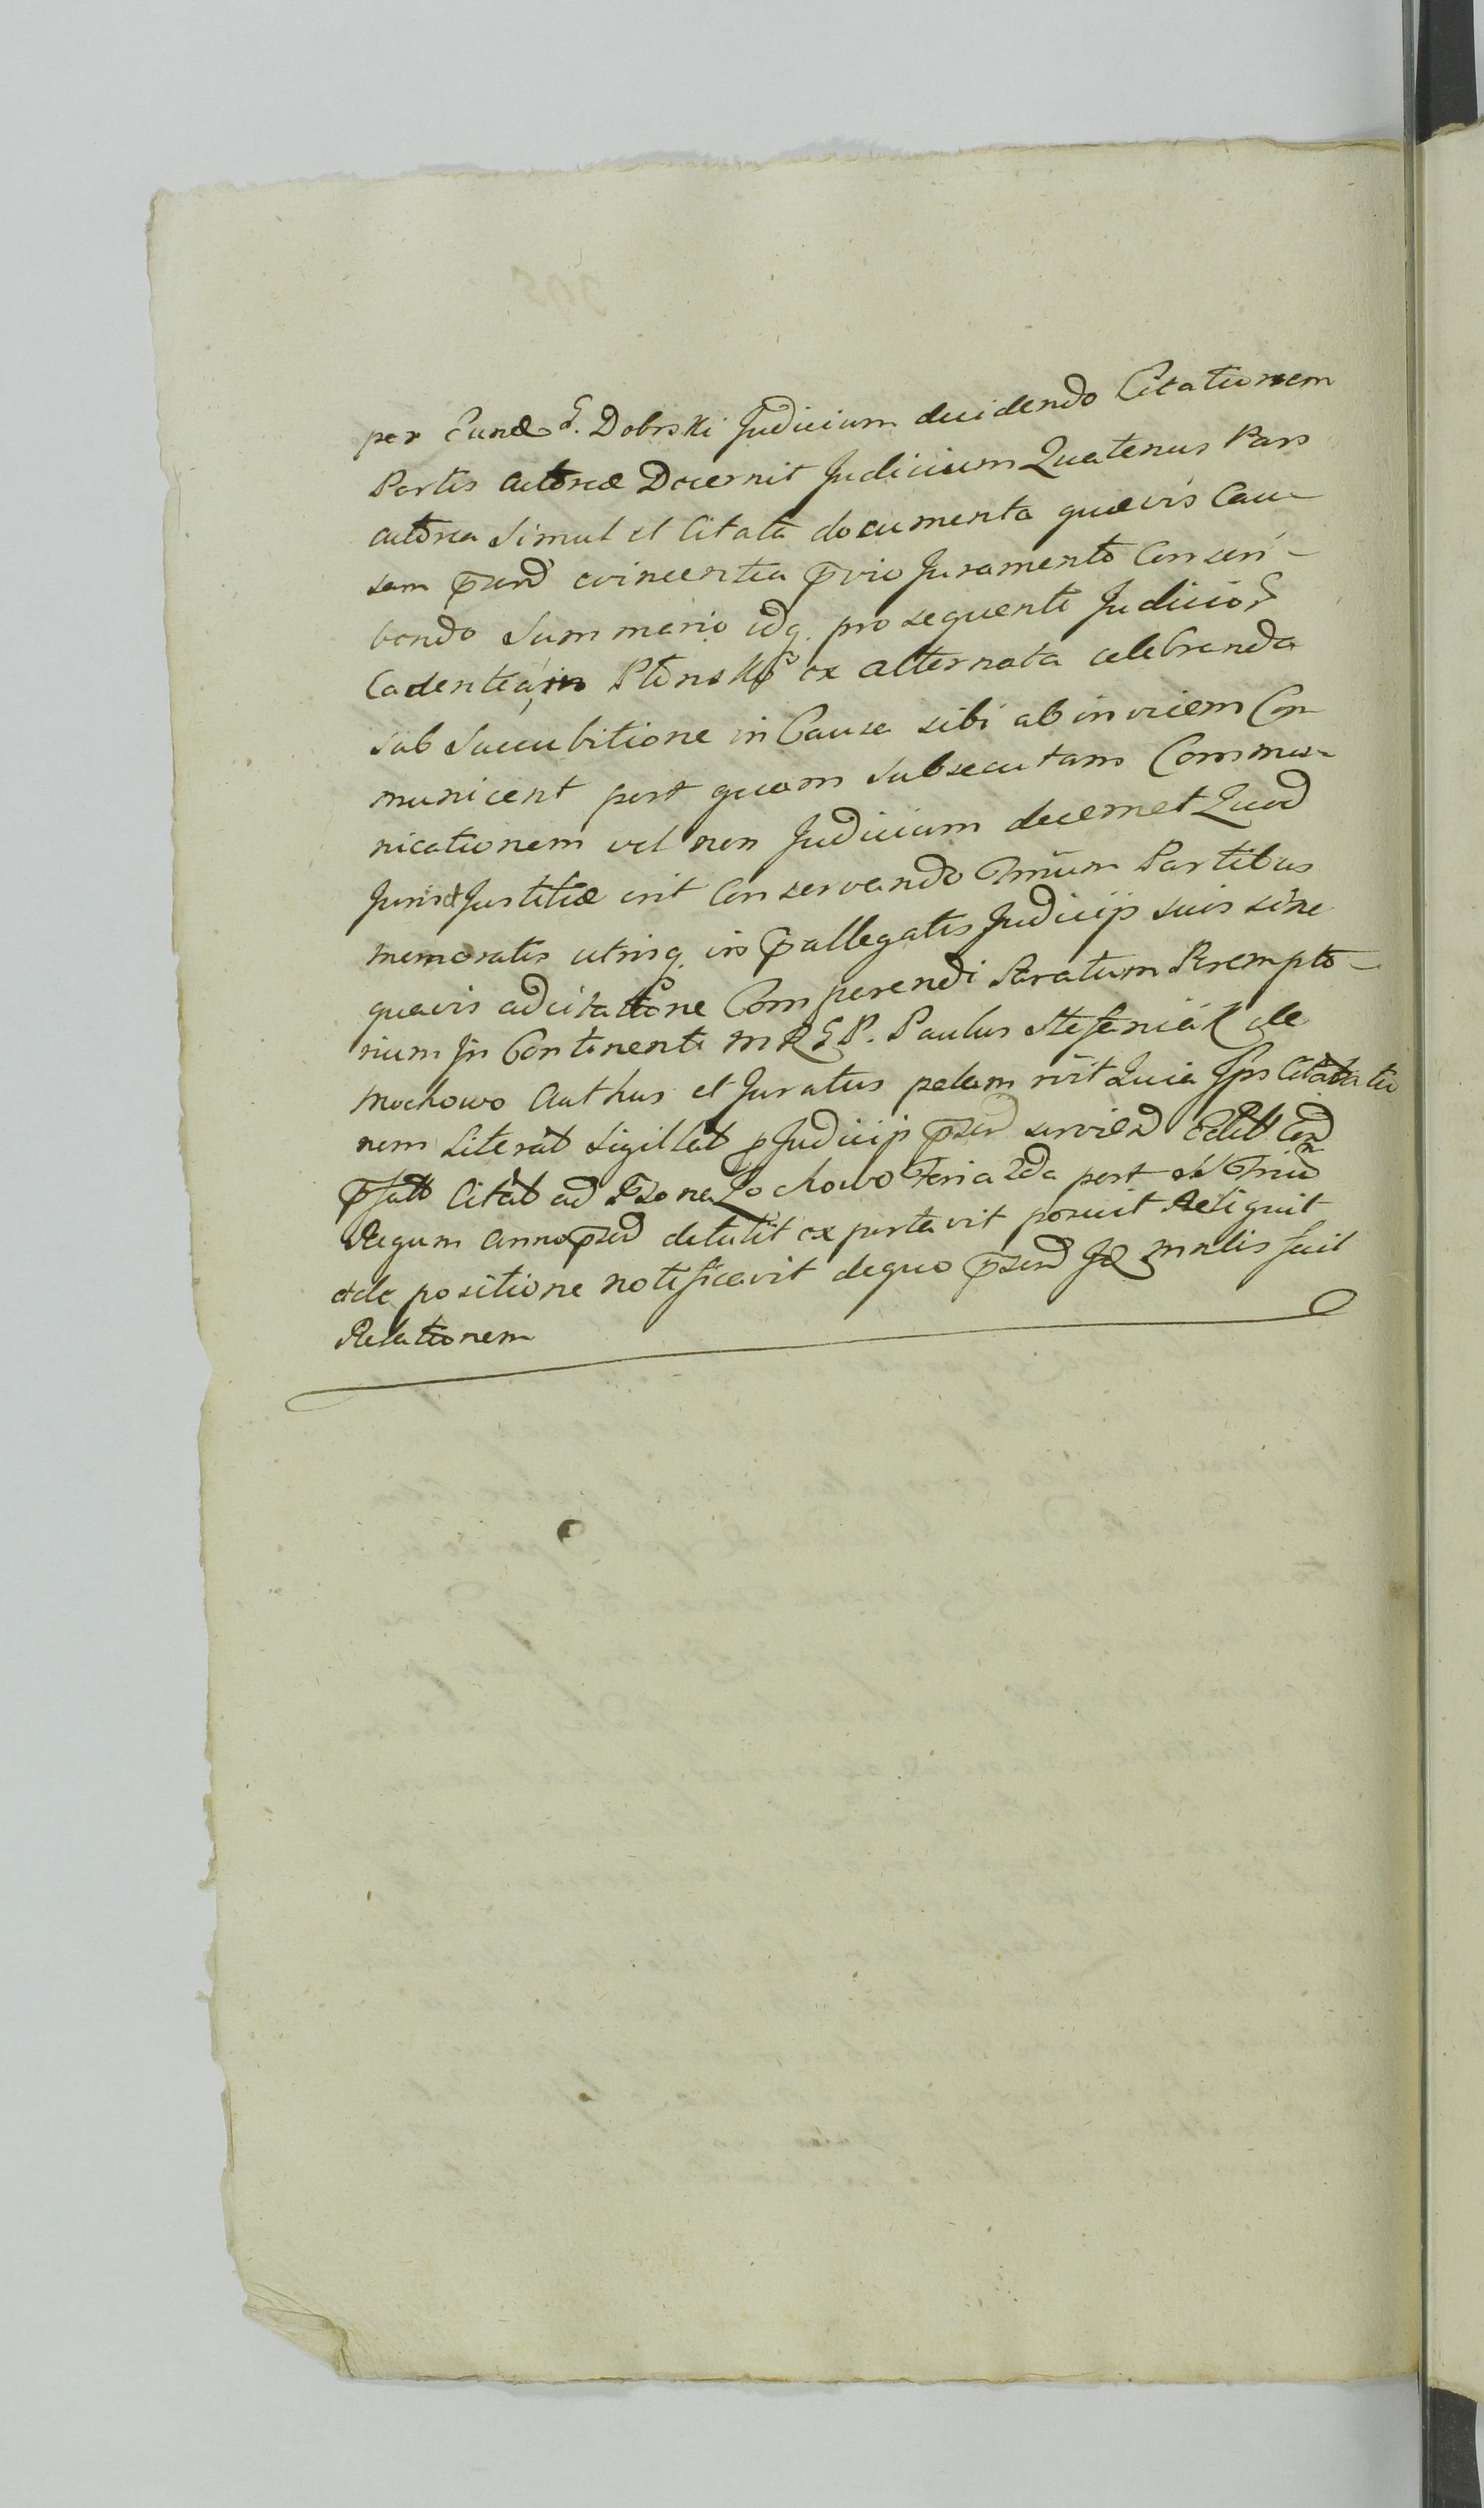 per Eund G. Dobrski Judicium decidendo Citationem
Partis Actoreæ Decernit Judicium Quatenus Pars
actorea Simul et Citata documenta quævis Cau-
sam evincentia Juramento Conseri-
bendo Summario idq. pro sequenti Judicior
Cadentea, in Plonsk ex alternata celebranda
sub Succubitione in Causa sibi ab invicem Com
municent post quam subsecutam Commu-
nicationem vel non Judicium decernet Quod
Juris et Justitiæ erit Conservando Trnum Partibus
memoratis utrisq. in pallegatis Judicijs suis sine
quavis adcitatione Comparendi Peremto-
rium In Continenti M R G P. Paulus Stefaniak de
Mochowo Authus et Juratus palam rvit Quia Ips Citatio
nem Literat Sigillat p Judicijs servien
Citat ad Bona Lochowo Feria 2da post
Regum anno detulit exportavit posuit Reliquit
etde positione notificavit dequo fecit
Relationem